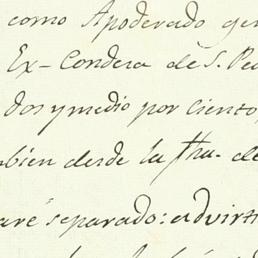 como Apoderado gen
Ex-Condesa de S. Ped
dos y medio por ciento,
mbien desde la fha. de
aré separado: advirti